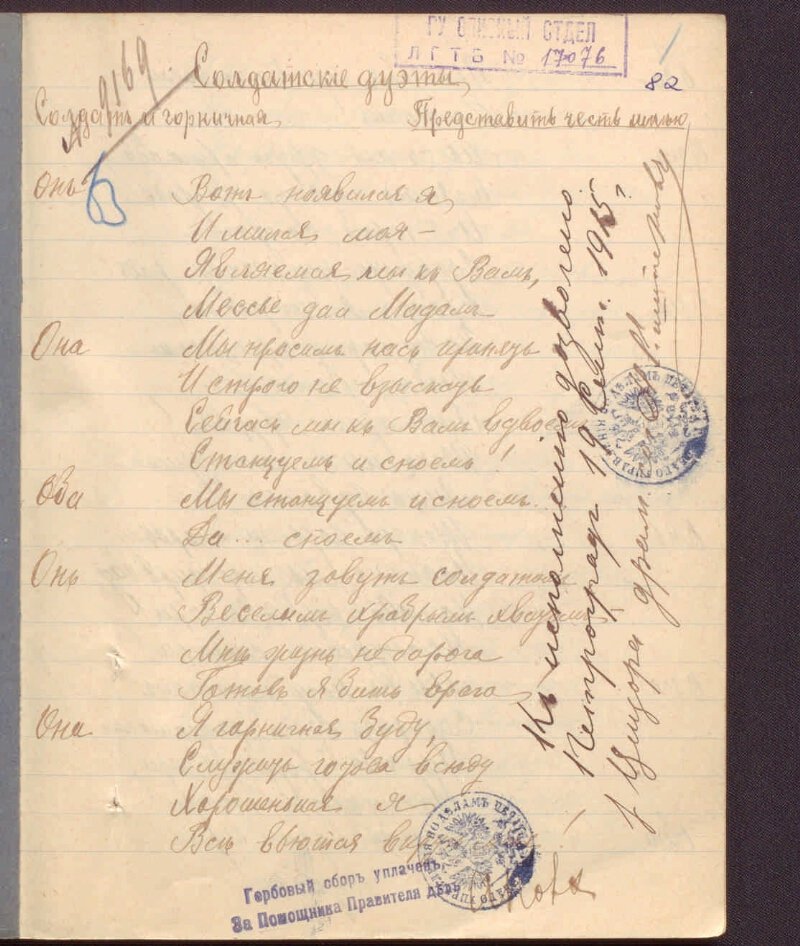 ЛГТБ № 17076
82
№ 9169
Солдатскіе дуэты
Солдатъ и горничная Представить честь имѣю
Онъ Вотъ появился я,
И милая моя –
Являемся мы къ Вамъ,
Месье даи Мадамъ
Она Мы просимъ насъ принять
И строго не взыскать
Сейчасъ мы къ Вамъ вдвоемъ
Станцуемъ и споемъ!
Оба Мы станцуемъ и споемъ
Да... споемъ
Онъ Меня зовутъ солдатомъ
Веселымъ храбрымъ хватомъ
Мнѣ жизнь не дорога
Готовъ я бить врага
Она Я горничная буду,
Служить готова всюду
Хорошенькая я
Всѣ вьются
Къ исполненію дозволено.
Петроградъ 19 Сент. 1915 г.
Цензоръ драм.
Гербовый сборъ уплаченъ.
За Помощника Правителя дѣлъ